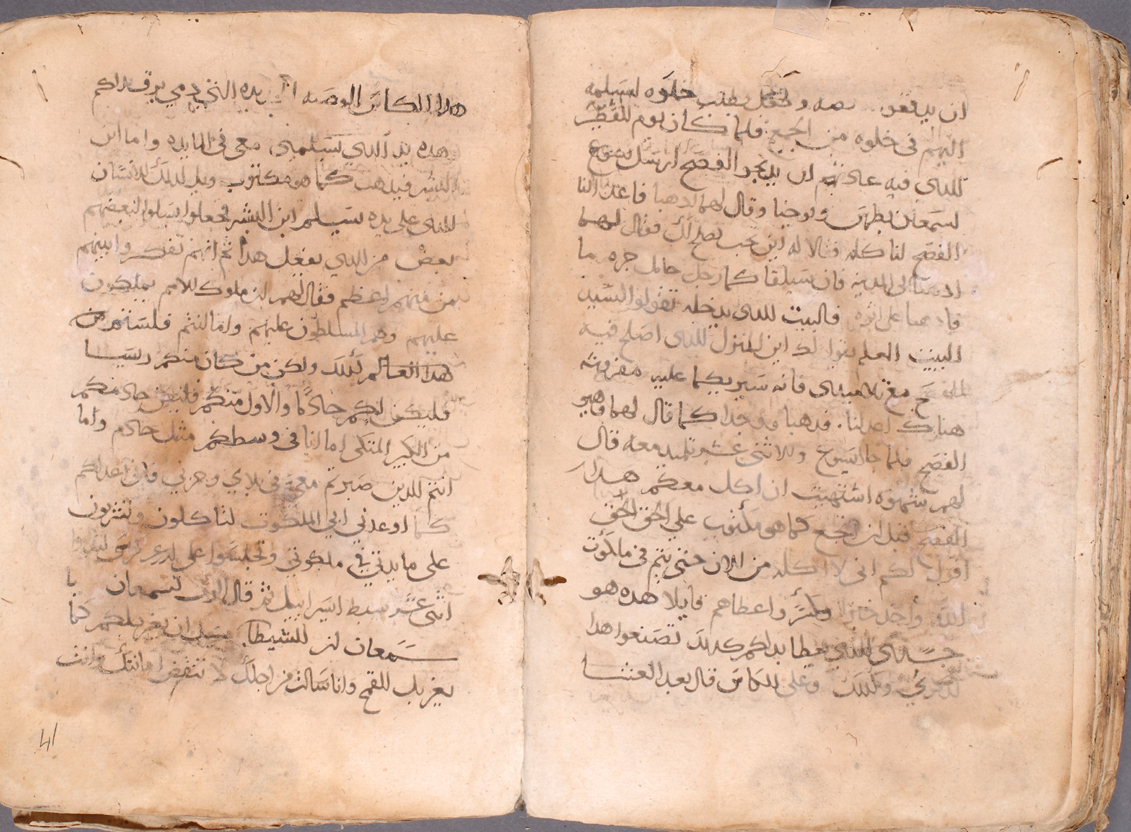 ان يدفعو فضه وجعل يطلب خلوه ليسلمه
اليهم في خلوه من الجمع فلما كان يوم الفطير
الذي فيه عادتهم ان يذبحو الفصح ارسل يسوع
لسمعان بطرس ويوحنا وقال لهما اذهبا فاعدا لنا
الفصح لناكله فقالا له اين تحب نصلح لك فقال لهما
اذهبا الى المدينه فان سيلقاكما رجل حامل جره ما
فاذهبا على اثره والبيت الذي يدخله تقولوا لسيد
البيت المعلم يقول لك اين المنزل الذي اصلح فيه
الفصح مع تلاميذي فانه سيريكما عليه مفروشه
هناك اعدا لنا فذهبا ووجدا كما قال لهما فاهيو
الفصح فلما جا يسوع والاثنى عشر تلميذ معه قال
لهم شهوه اشتهيت ان اكل معكم هذا
الفصح قبل ان مكتوب على الحق الحق
اقول لكم اني لا اكله من الان حتى يتم في ملكوت
الله واخذ خبزا وكسر واعطاهم قايلا هذه هو
جسدي الذي يعطا بدلكم كذلك تصنعوا هذا
لذكري وكذلك وعلى الكاس قال بعد العشا
هذا الكاس الوصيه الجديده التي بدمي يهرق بداكم
هذه يد الذي يسلمني معي في المايده واما ابن
البشر فيذهب كما هو مكتوب ويل لذلك الانسان
الذي على يده يسلم ابن البشر فجعلوا يسلوا لبعضهم
بعض من الذي يفعل هذا ثم انهم تفكروا بينهم
من منهم اعظم فقال لهم ان ملوك الامم يملكون
عليهم وهم المسلطون عليهم واما انتم فلستم من
هذا العالم كذلك ولكن من كان منكم رييسا
فليكن لكم خادما والاول منكم فليكن خادمكم
من الكبير المتكي اما انا في وسطكم مثل خادم واما
انتم الذين صبرتم معي في بلاي وحزني فاني اعدلكم
كما اوعدني ابي الملكوت لتاكلون وتشربون
على مايدتي في ملكوتي وتجلسوا على كرسي
اثنى عشر سبط اسراييل ثم قال الرب لسمعان يا
سمعان ان الشيطان يسل ان يغربلكم كما
يغربل القمح وانا سالت من اجلك لا تنقص امانتك وانت
41